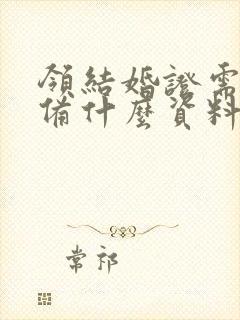 領結婚證需
備什麼資料
常祁